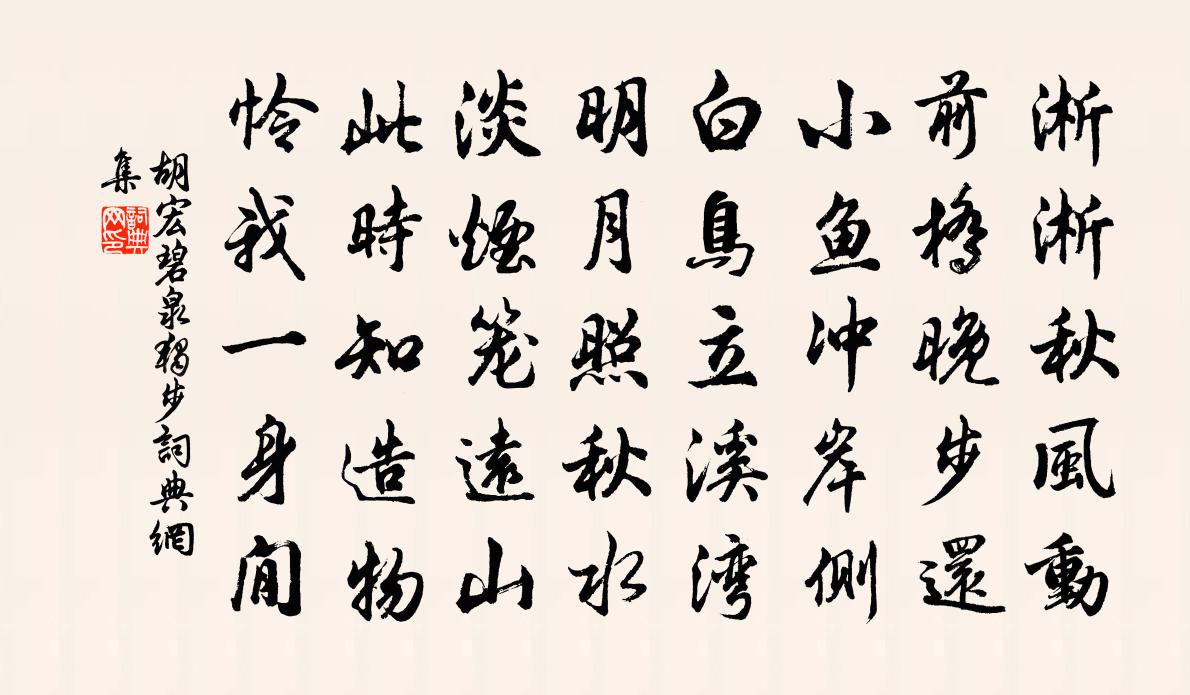 淅淅秋風動
前橋晚步還
小魚冲岸側
白鳥立溪湾
明月照秋水
淡煙笼遠山
此時知造物
怜我一身閒
胡宏碧泉獨步詞典網
集
詞典網印